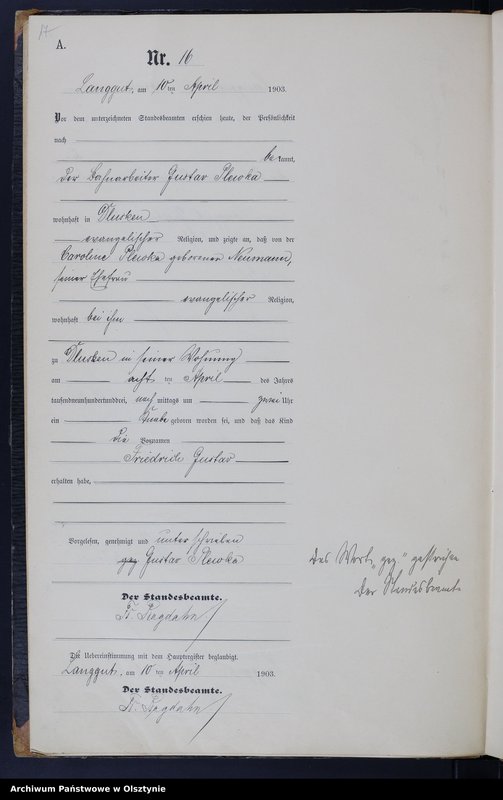 17
A.
Nr. 16
Langgut, am 10ten April 1903.
Vor dem unterzeichneten Standesbeamten erschien heute, der Persönlichkeit
nach
be kannt,
der Bahnarbeiter Gustav Plewka
wohnhaft in Plusken
evangelischer Religion, und zeigte an, daß von der
Caroline Plewka geborenen Neumann,
seiner Ehefrau
evangelischer Religion,
wohnhaft bei ihm
zu Plusken in seiner Wohnung
am acht ten April des Jahres
tausendneunhundertunddrei, nach mittags um zwei Uhr
ein Knabe geboren worden sei, und daß das Kind
die Vornamen
Friedrich Gustav
erhalten habe,
Vorgelesen, genehmigt und unterschrieben
gez Gustav Plewka
Das Wort "gez" gestrichen
Der Standesbeamte
Der Standesbeamte.
Die Uebereinstimmung mit dem Hauptregister beglaubigt.
Langgut, am 10 ten April 1903.
Der Standesbeamte.
Archiwum Państwowe w Olsztynie